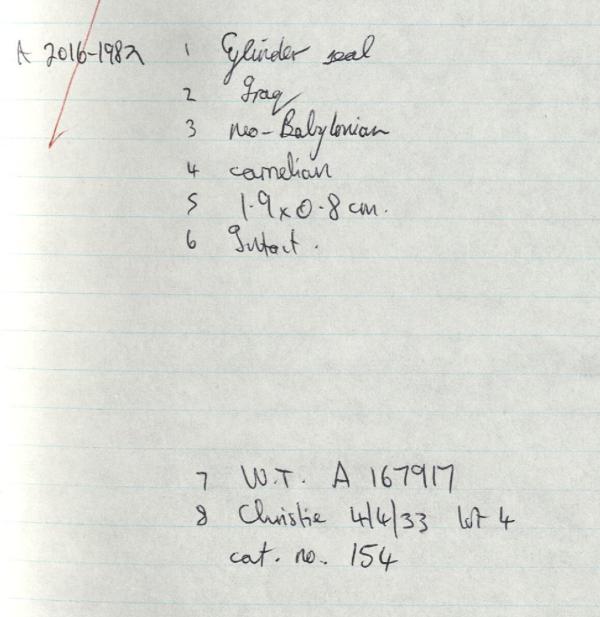 A 2016-1982 1 Cylinder seal
2 Iraq
3 neo-Babylonian
4 carnelian
5 1.9 x 0.8 cm.
6 Intact.
7 W.T. A 167917
8 Christie 4/4/33 lot 4
cat. no. 154